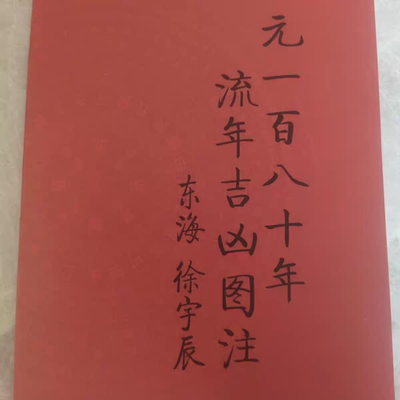 元一百八十年
流年吉凶图注
东海 徐宇辰